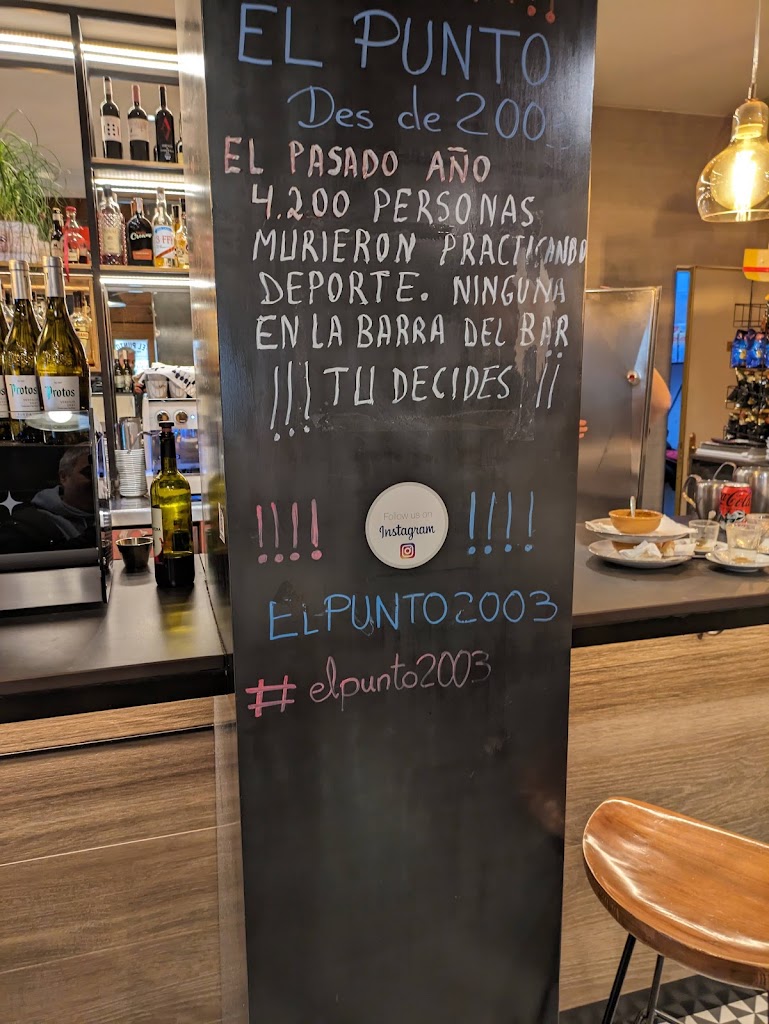 EL PUNTO
Des de 200
EL PASADO AÑO
4.200 PERSONAS
MURIERON PRACTICANDO
DEPORTE. NINGUNA
EN LA BARRA DEL BAR
!!! TU DECIDES ¡¡
!!!! Follow us on !!!!
Instagram
ELPUNTO2003
# elpunto2003
Protos
Protos